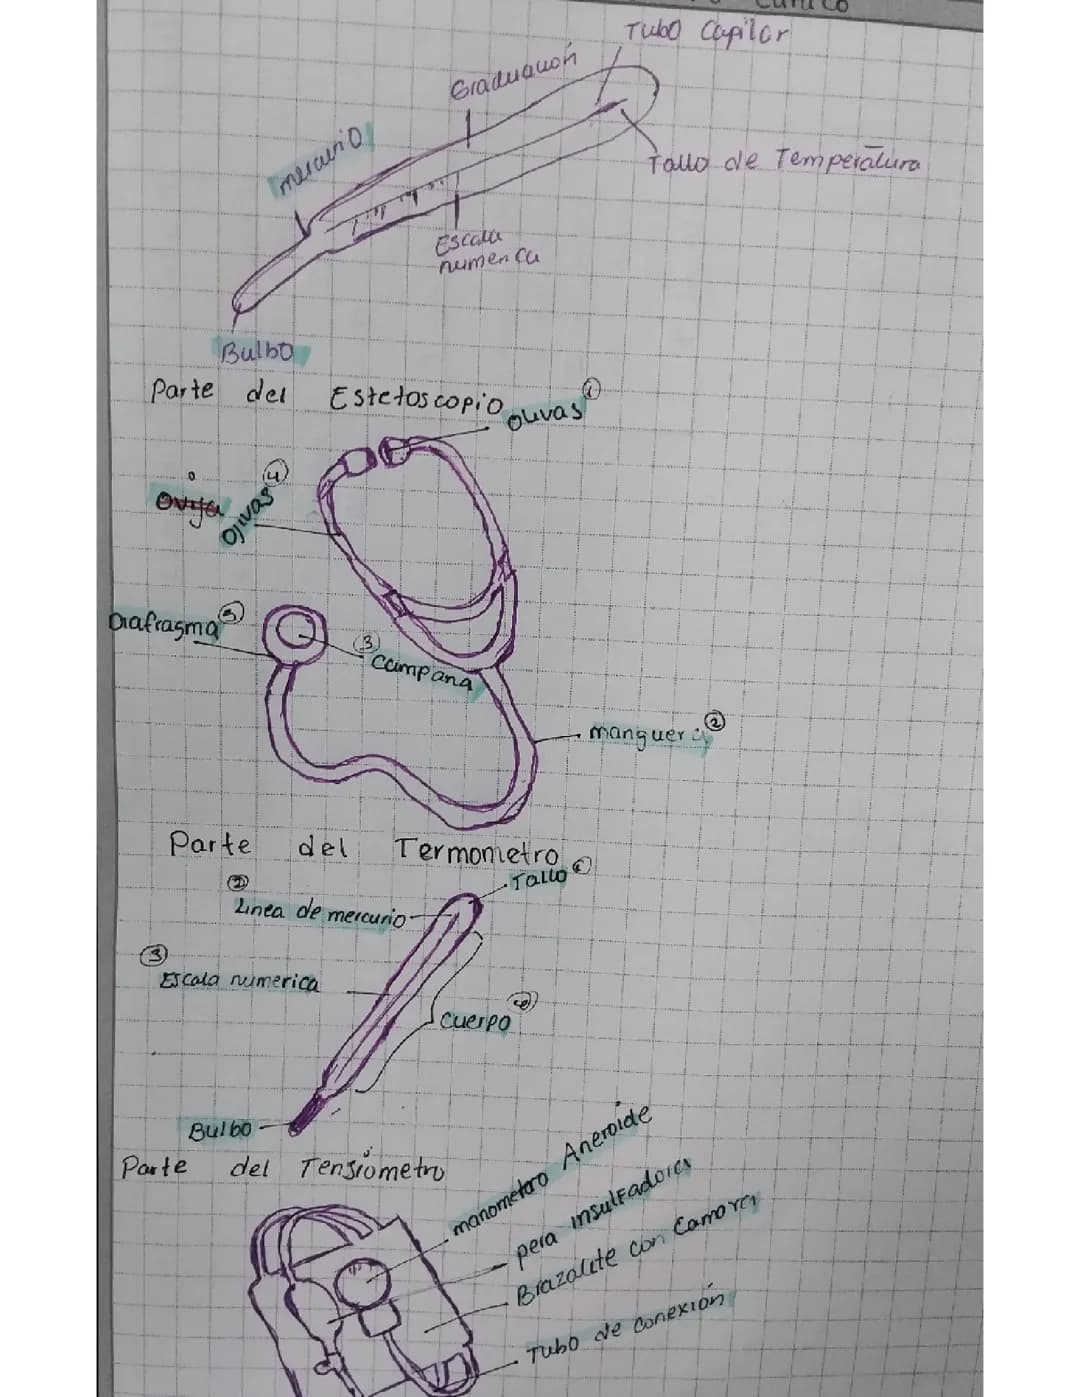 Tubo Capilar
Graduación
mercurio
Tallo de Temperatura
Escala
numerica
Bulbo
Parte del Estetoscopio
①
olivas
④
Ovija
Ojivas
Diafragma ⑤
③
Campana
manguera ②
Parte del Termometro
Tallo ①
②
Linea de mercurio
③
Escala numerica
④
Cuerpo
Bulbo
Parte del Tensiometro
manometro Aneroide
pera insulfadora
Brazalete con Camara
Tubo de conexión